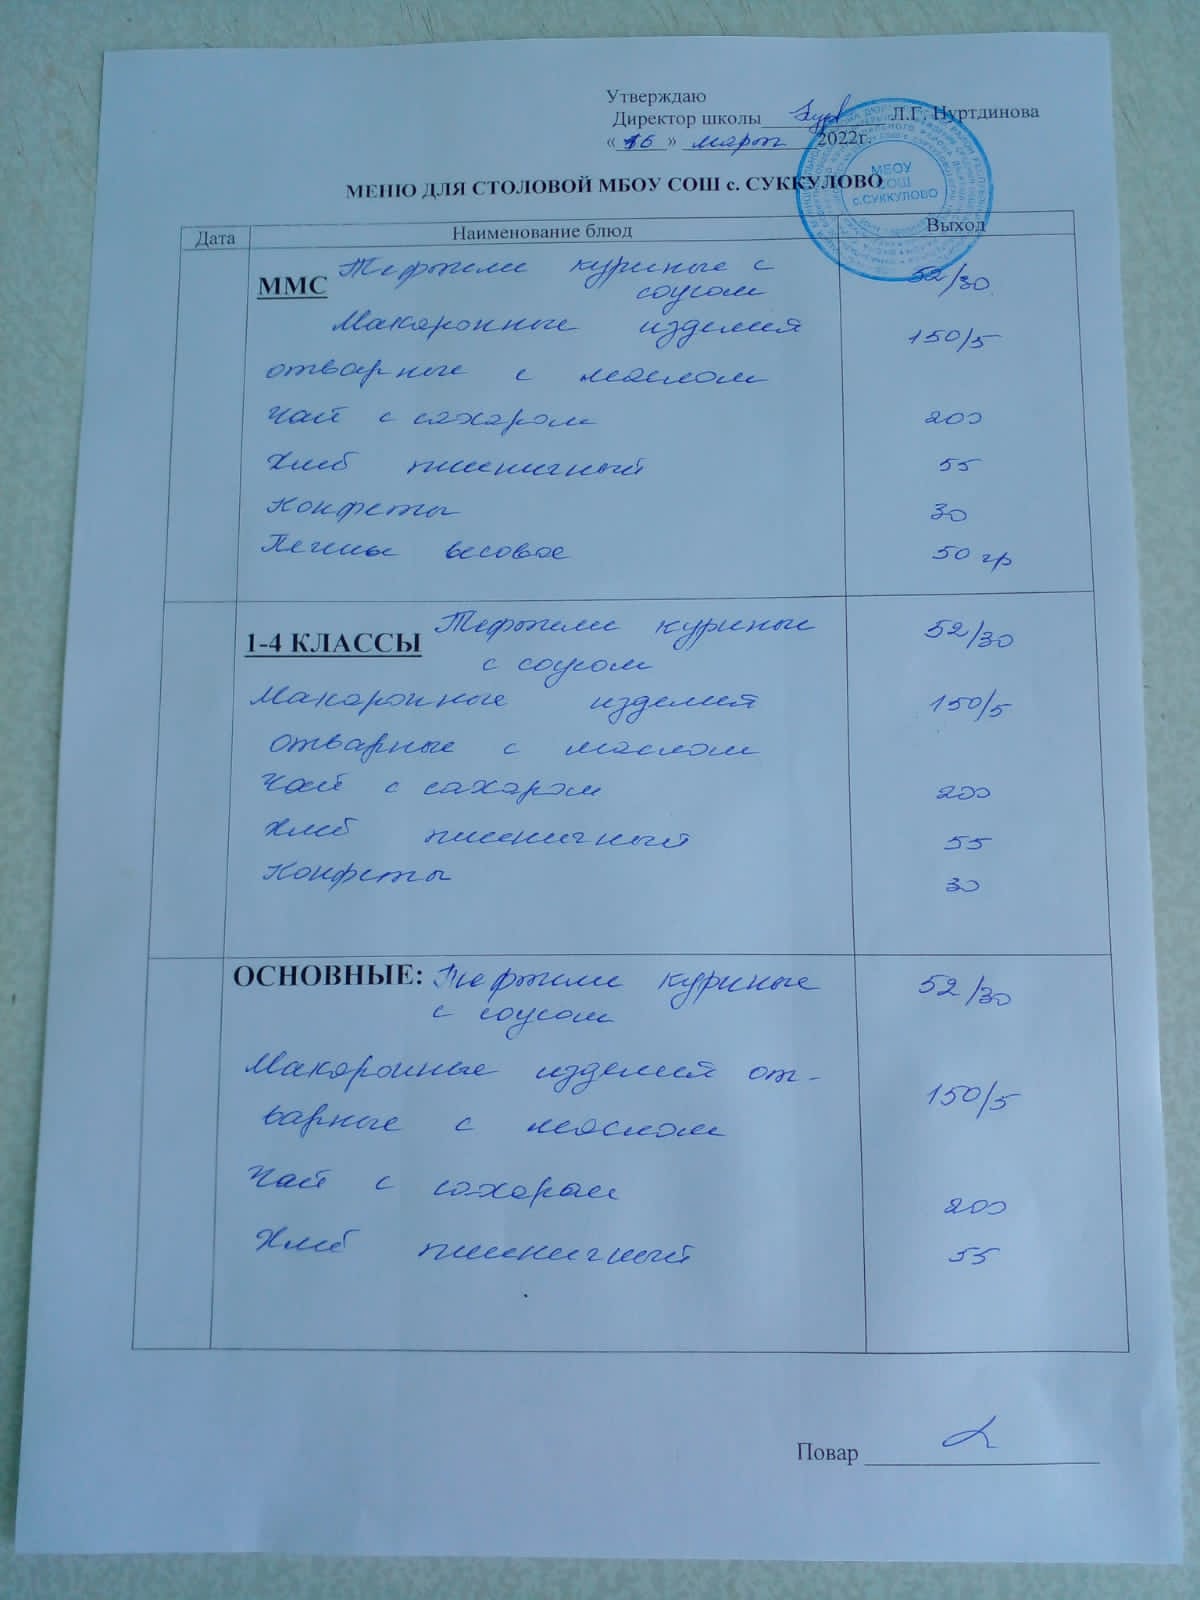 Утверждаю
Директор школы Л.Г. Нуртдинова
« 16 » март 2022г.
МБОУ
СОШ
с.СУККУЛОВО
МЕНЮ ДЛЯ СТОЛОВОЙ МБОУ СОШ с. СУККУЛОВО
Дата Наименование блюд Выход
ММС Тефтели куриные с 52/30
соусом
Макаронные изделия 150/5
отварные с маслом
Чай с сахаром 200
Хлеб пшеничный 55
Конфеты 30
Печенье весовое 50 гр
1-4 КЛАССЫ Тефтели куриные 52/30
с соусом
Макаронные изделия 150/5
отварные с маслом
Чай с сахаром 200
Хлеб пшеничный 55
Конфеты 30
ОСНОВНЫЕ: Тефтели куриные 52/30
с соусом
Макаронные изделия от-
варные с маслом 150/5
Чай с сахаром 200
Хлеб пшеничный 55
Повар